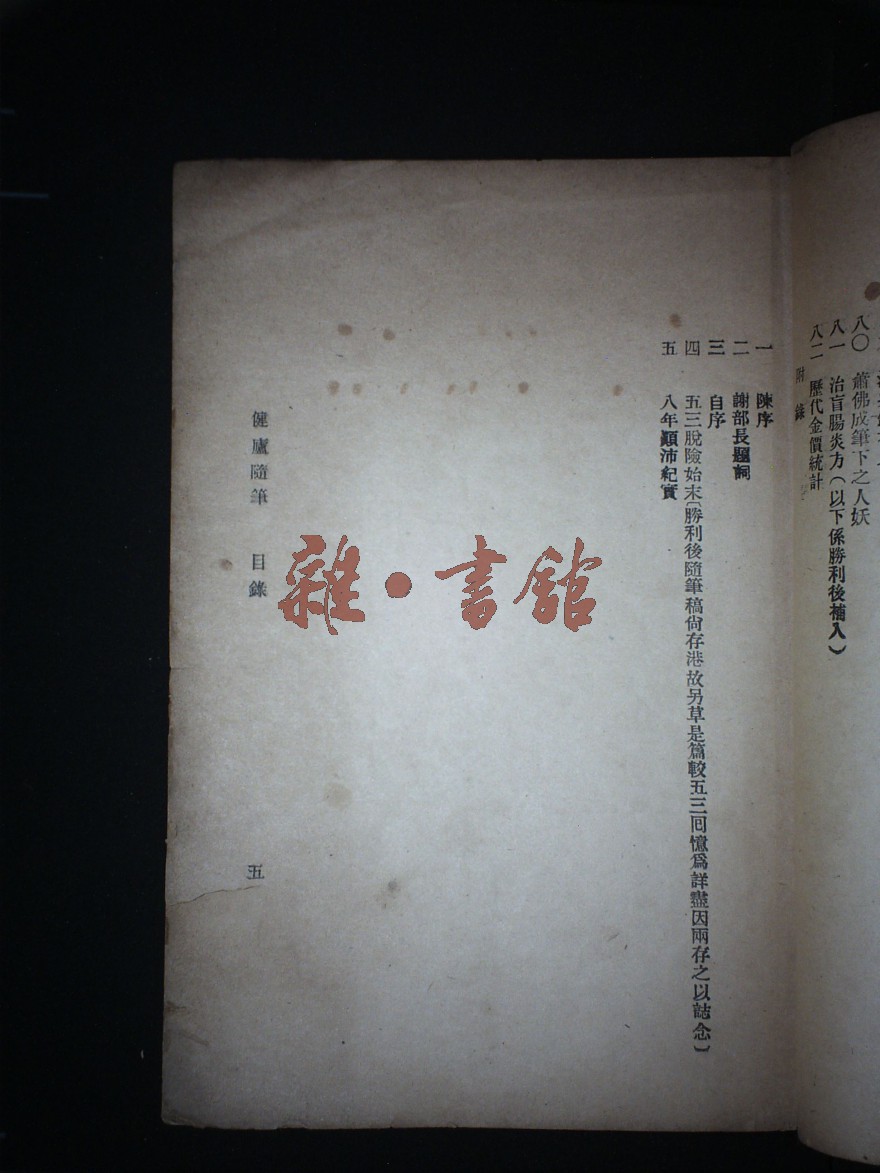 八〇　蕭佛成筆下之人妖
八一　治盲腸炎方（以下係勝利後補入）
八二　歷代金價統計
附錄
一　陳序
二　謝部長題詞
三　自序
四　五三脫險始末（勝利後隨筆稿尙存港故另草是篇較五三回憶爲詳盡因兩存之以誌念）
五　八年顚沛紀實
健廬隨筆　目錄　五
雜·書館